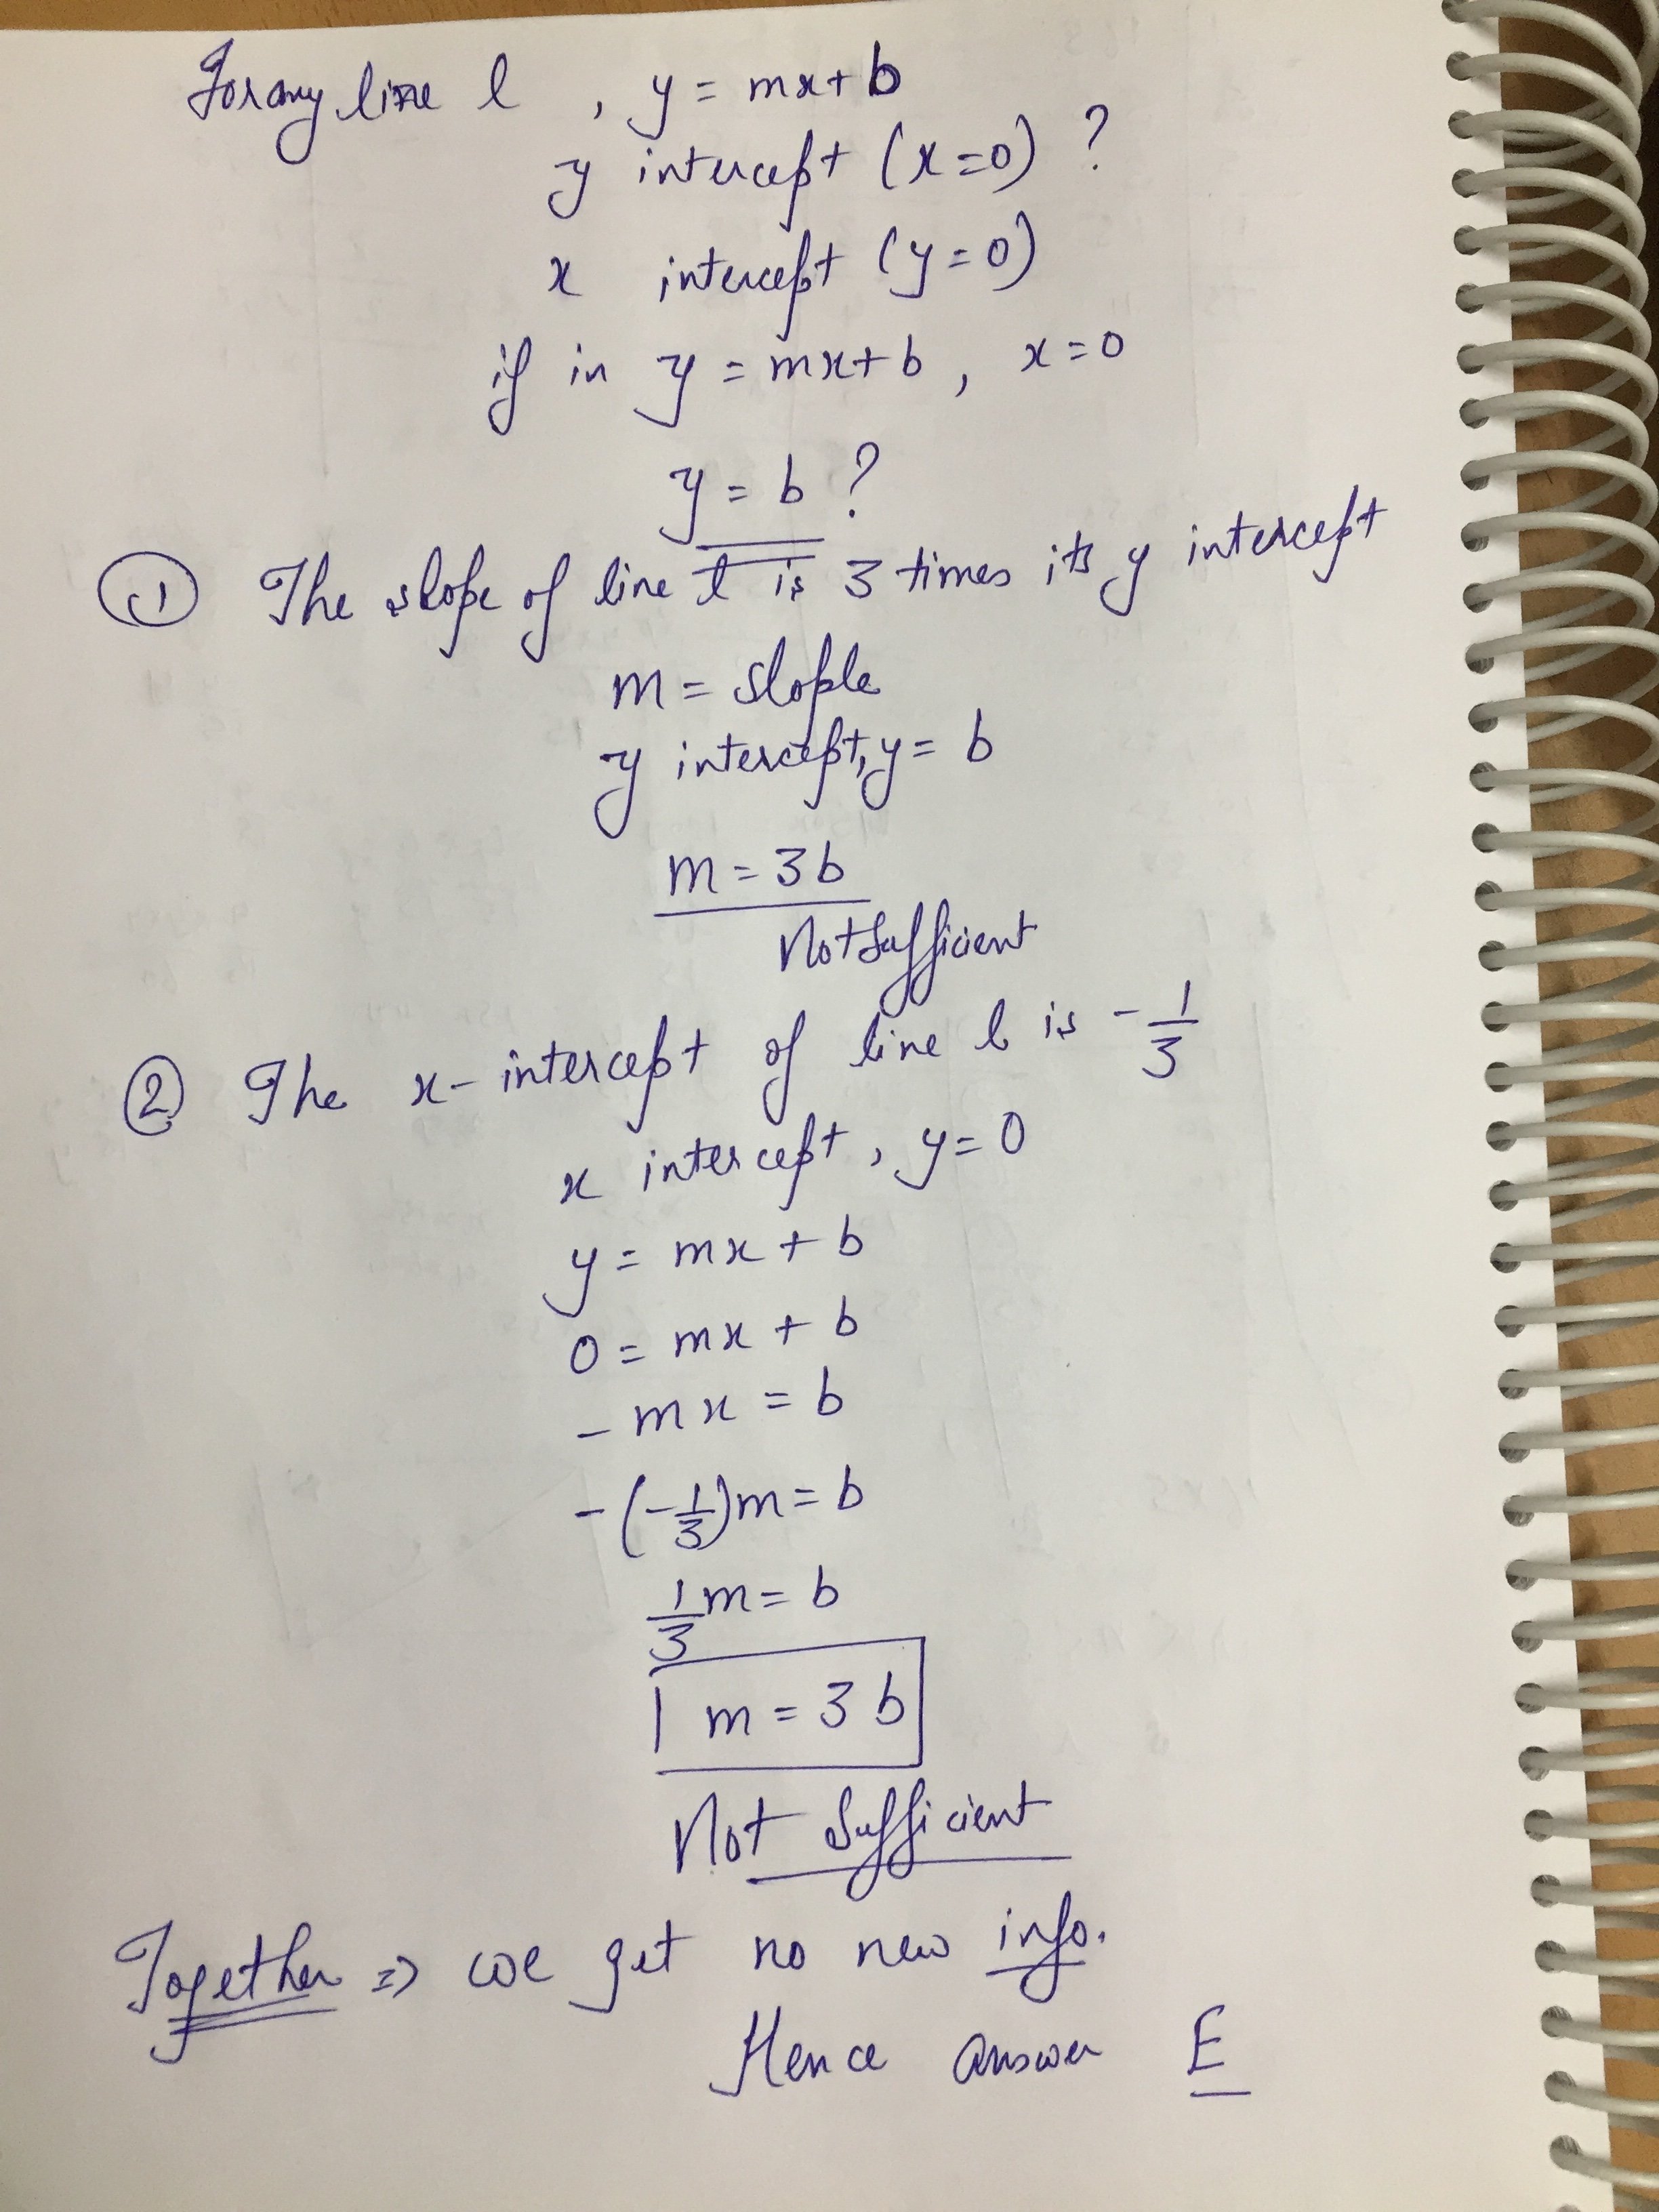 For any line l , y = mx + b
y intercept (x=0) ?
x intercept (y=0)
if in y = mx + b , x = 0
y = b ?
① The slope of line l is 3 times its y intercept
m = slople
y intercept, y = b
m = 3b
Not Sufficient
② The x-intercept of line l is -1/3
x intercept , y = 0
y = mx + b
0 = mx + b
- mx = b
- (-1/3)m = b
1/3 m = b
m = 3b
Not Sufficient
Together => we get no new info.
Hence answer E